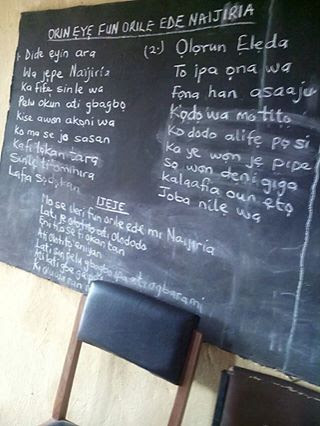 ORIN EYẸ FUN ORILE EDE NAIJIRIA
1. Dide eyin ara
Wa jẹpe Naijiria
Ka fifẹ sinle wa
Pelu okun ati gbagbọ
Kise awon akọni wa
ko ma se jo sasan
Kafi tọkan tara
Sinlẹ tiominira
Lafia sọdọkan
(2.) Ọlọrun Ẹlẹda
To ipa ọna wa
Fọna han asaaju
Kọdọ wa mo titọ
Ko dodo ati fẹ pọ si
Ka ye won jẹ pipe
Sọ won deni giga
Kalaafia oun ẹtọ
Jọba nile wa
IJEJE
Mo se ileri fun orile ede mi Naijiria
Lati jẹ olododo
Eniti o se fi ọkan tan
Ati olotitọ eniyan
Lati sin pelu gbogbo ipa ati agbara mi